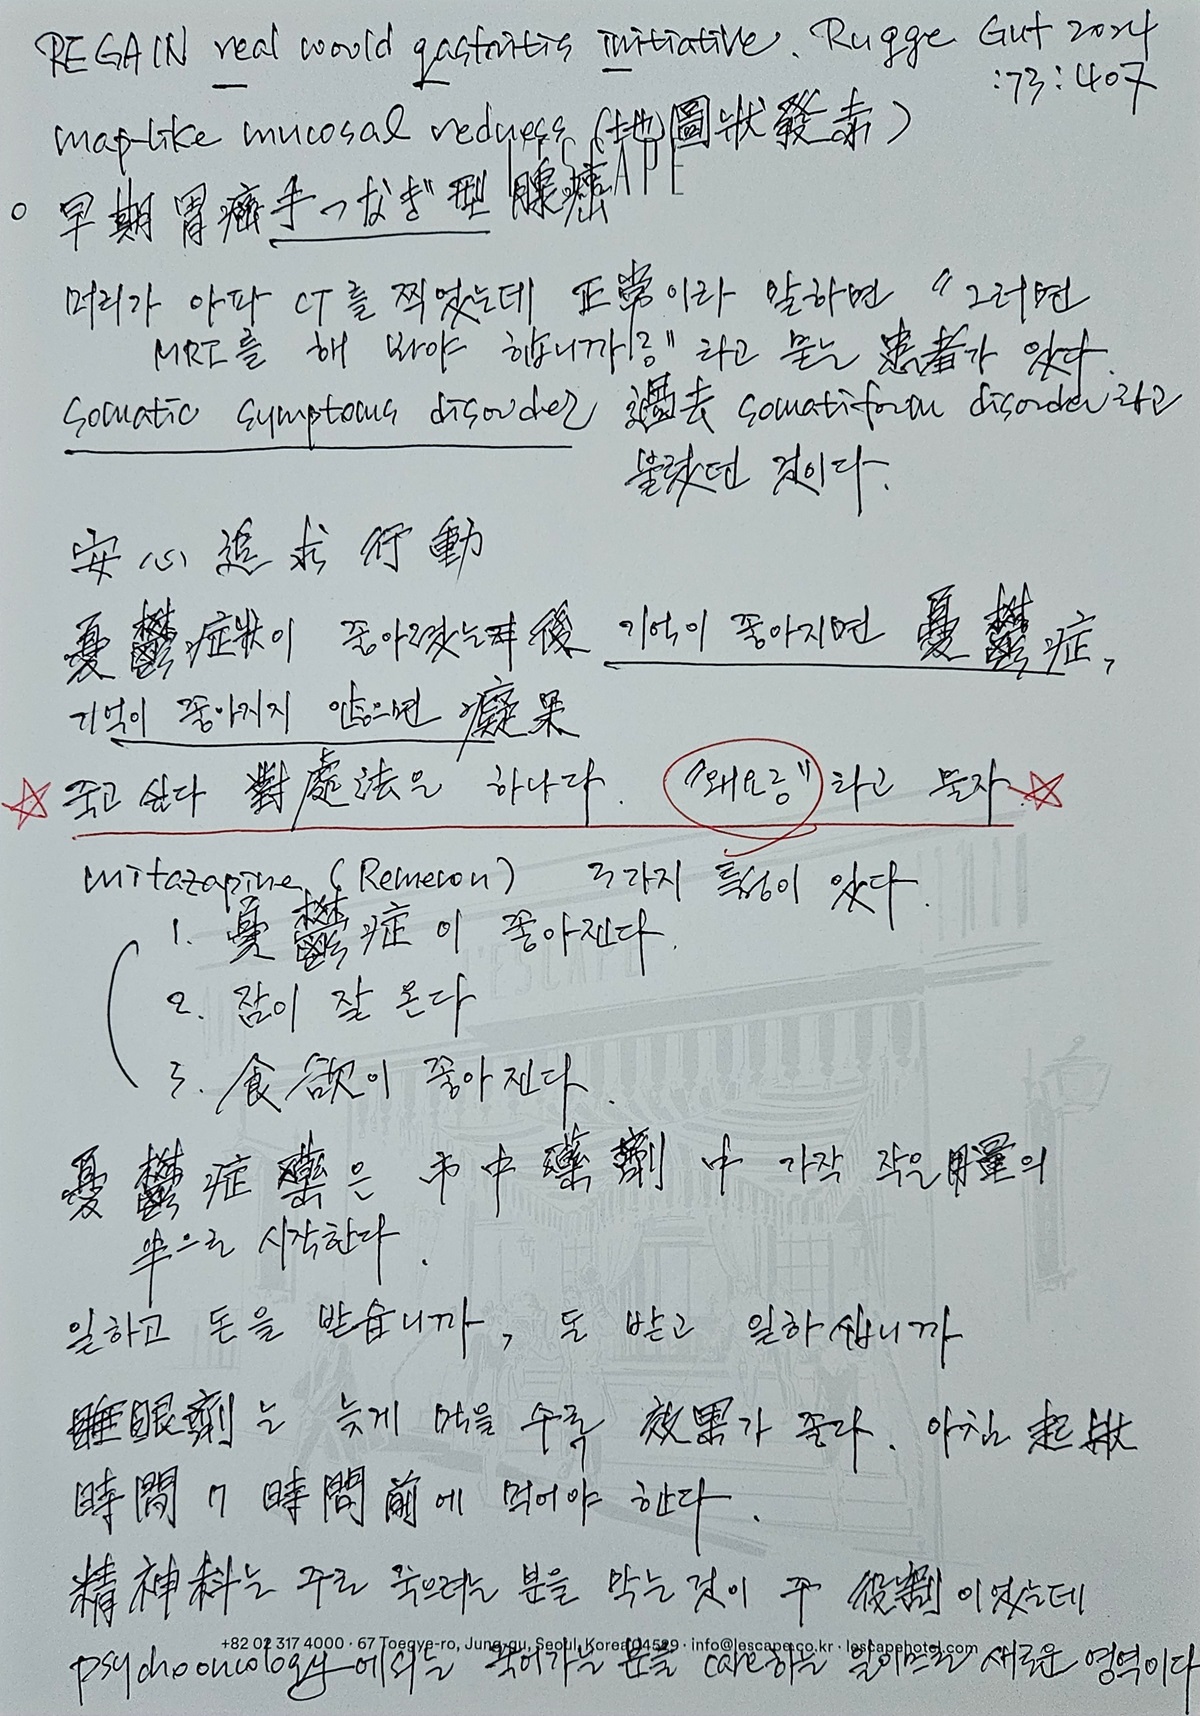 REGAIN real world gastritis initiative. Rugge Gut 2024
:73:407
map-like mucosal redness (地圖狀發赤)
L'ESCAPE
○ 早期胃癌 手つなぎ型 腺癌
머리가 아파 CT를 찍었는데 正常이라 말하면 "그러면
MRI를 해 봐야 합니까?" 라고 묻는 患者가 있다.
somatic symptoms disorder 過去 somatiform disorder라고
불렀던 것이다.
安心追求行動
憂鬱症狀이 좋아졌는데 後 기억이 좋아지면 憂鬱症,
기억이 좋아지지 않으면 癡呆
☆ 죽고 싶다 對處法은 하나다. "왜요?" 라고 묻자 ☆
mitazapine (Remeron) 3가지 특성이 있다.
1. 憂鬱症이 좋아진다.
2. 잠이 잘 온다
3. 食欲이 좋아진다.
憂鬱症藥은 市中 藥劑 中 가장 작은 用量의
半으로 시작한다.
일하고 돈을 받습니까, 돈 받고 일하십니까
睡眠劑는 늦게 먹을 수록 效果가 좋다. 아침 起牀
時間 7 時間前에 먹어야 한다.
精神科는 주로 죽으려는 분을 막는 것이 주 役割이었는데
+82 02 317 4000 · 67 Toegye-ro, Jung-gu, Seoul, Korea 04529 · info@lescape.co.kr · lescapehotel.com
psychooncology에서는 죽어가는 분을 care하는 새로운 영역이다